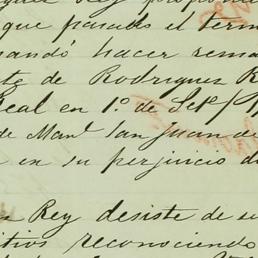 que pasado el term
mandó hacer rema
te de Rodriguez R
eal en 1º de Set/
de Manl San Juan de
en su perjuicio d
Rey desiste de su
itios reconociendo